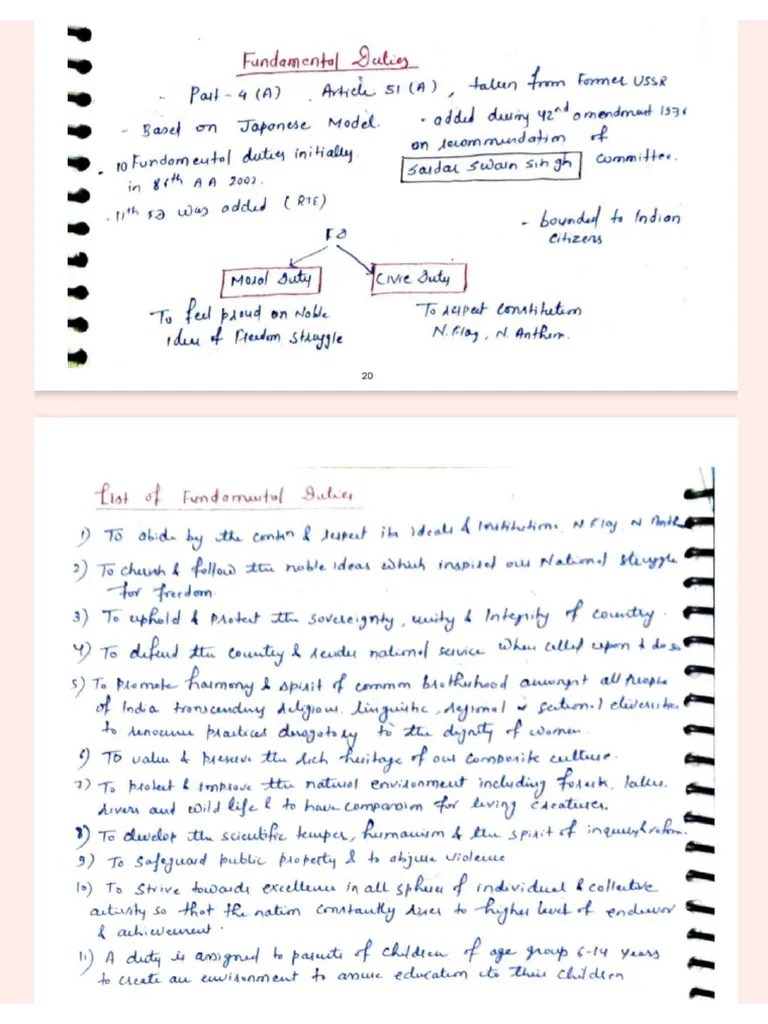 Fundamental Duties
- Part-4 (A) . Article 51 (A) , taken from Former USSR
- Based on Japanese Model.
• added during 42nd amendment 1976
on recommendation of
Sardar Swarn Singh committee.
• 10 Fundamental duties initially
in 86th AA 2002.
• 11th FD was added (RTE)
- bounded to Indian
citizens
FD
Moral Duty
Civic Duty
To feel proud on Noble
idea of Freedom struggle
To respect constitution
N. Flag, N. Anthem.
20
List of Fundamental Duties
1) To abide by the constn & respect its ideals & Institutions. N Flag N Anth
2) To cherish & follow the noble ideas which inspired our National struggle
for freedom.
3) To uphold & protect the sovereignty, unity & Integrity of country.
4) To defend the country & render national service when called upon to do so
5) To promote harmony & spirit of common brotherhood amongst all people
of India transcending religious, linguistic, regional or sectional diversities
to renounce practices derogatory to the dignity of women.
6) To value & preserve the rich heritage of our composite culture.
7) To protect & improve the natural environment including forest, lakes,
rivers and wild life & to have compassion for living creatures.
8) To develop the scientific temper, humanism & the spirit of inquiry & reform.
9) To safeguard public property & to abjure violence
10) To Strive towards excellence in all spheres of individual & collective
activity so that the nation constantly rises to higher level of endeavor
& achievement.
11) A duty is assigned to parents of children of age group 6-14 years
to create an environment to assure education to their children